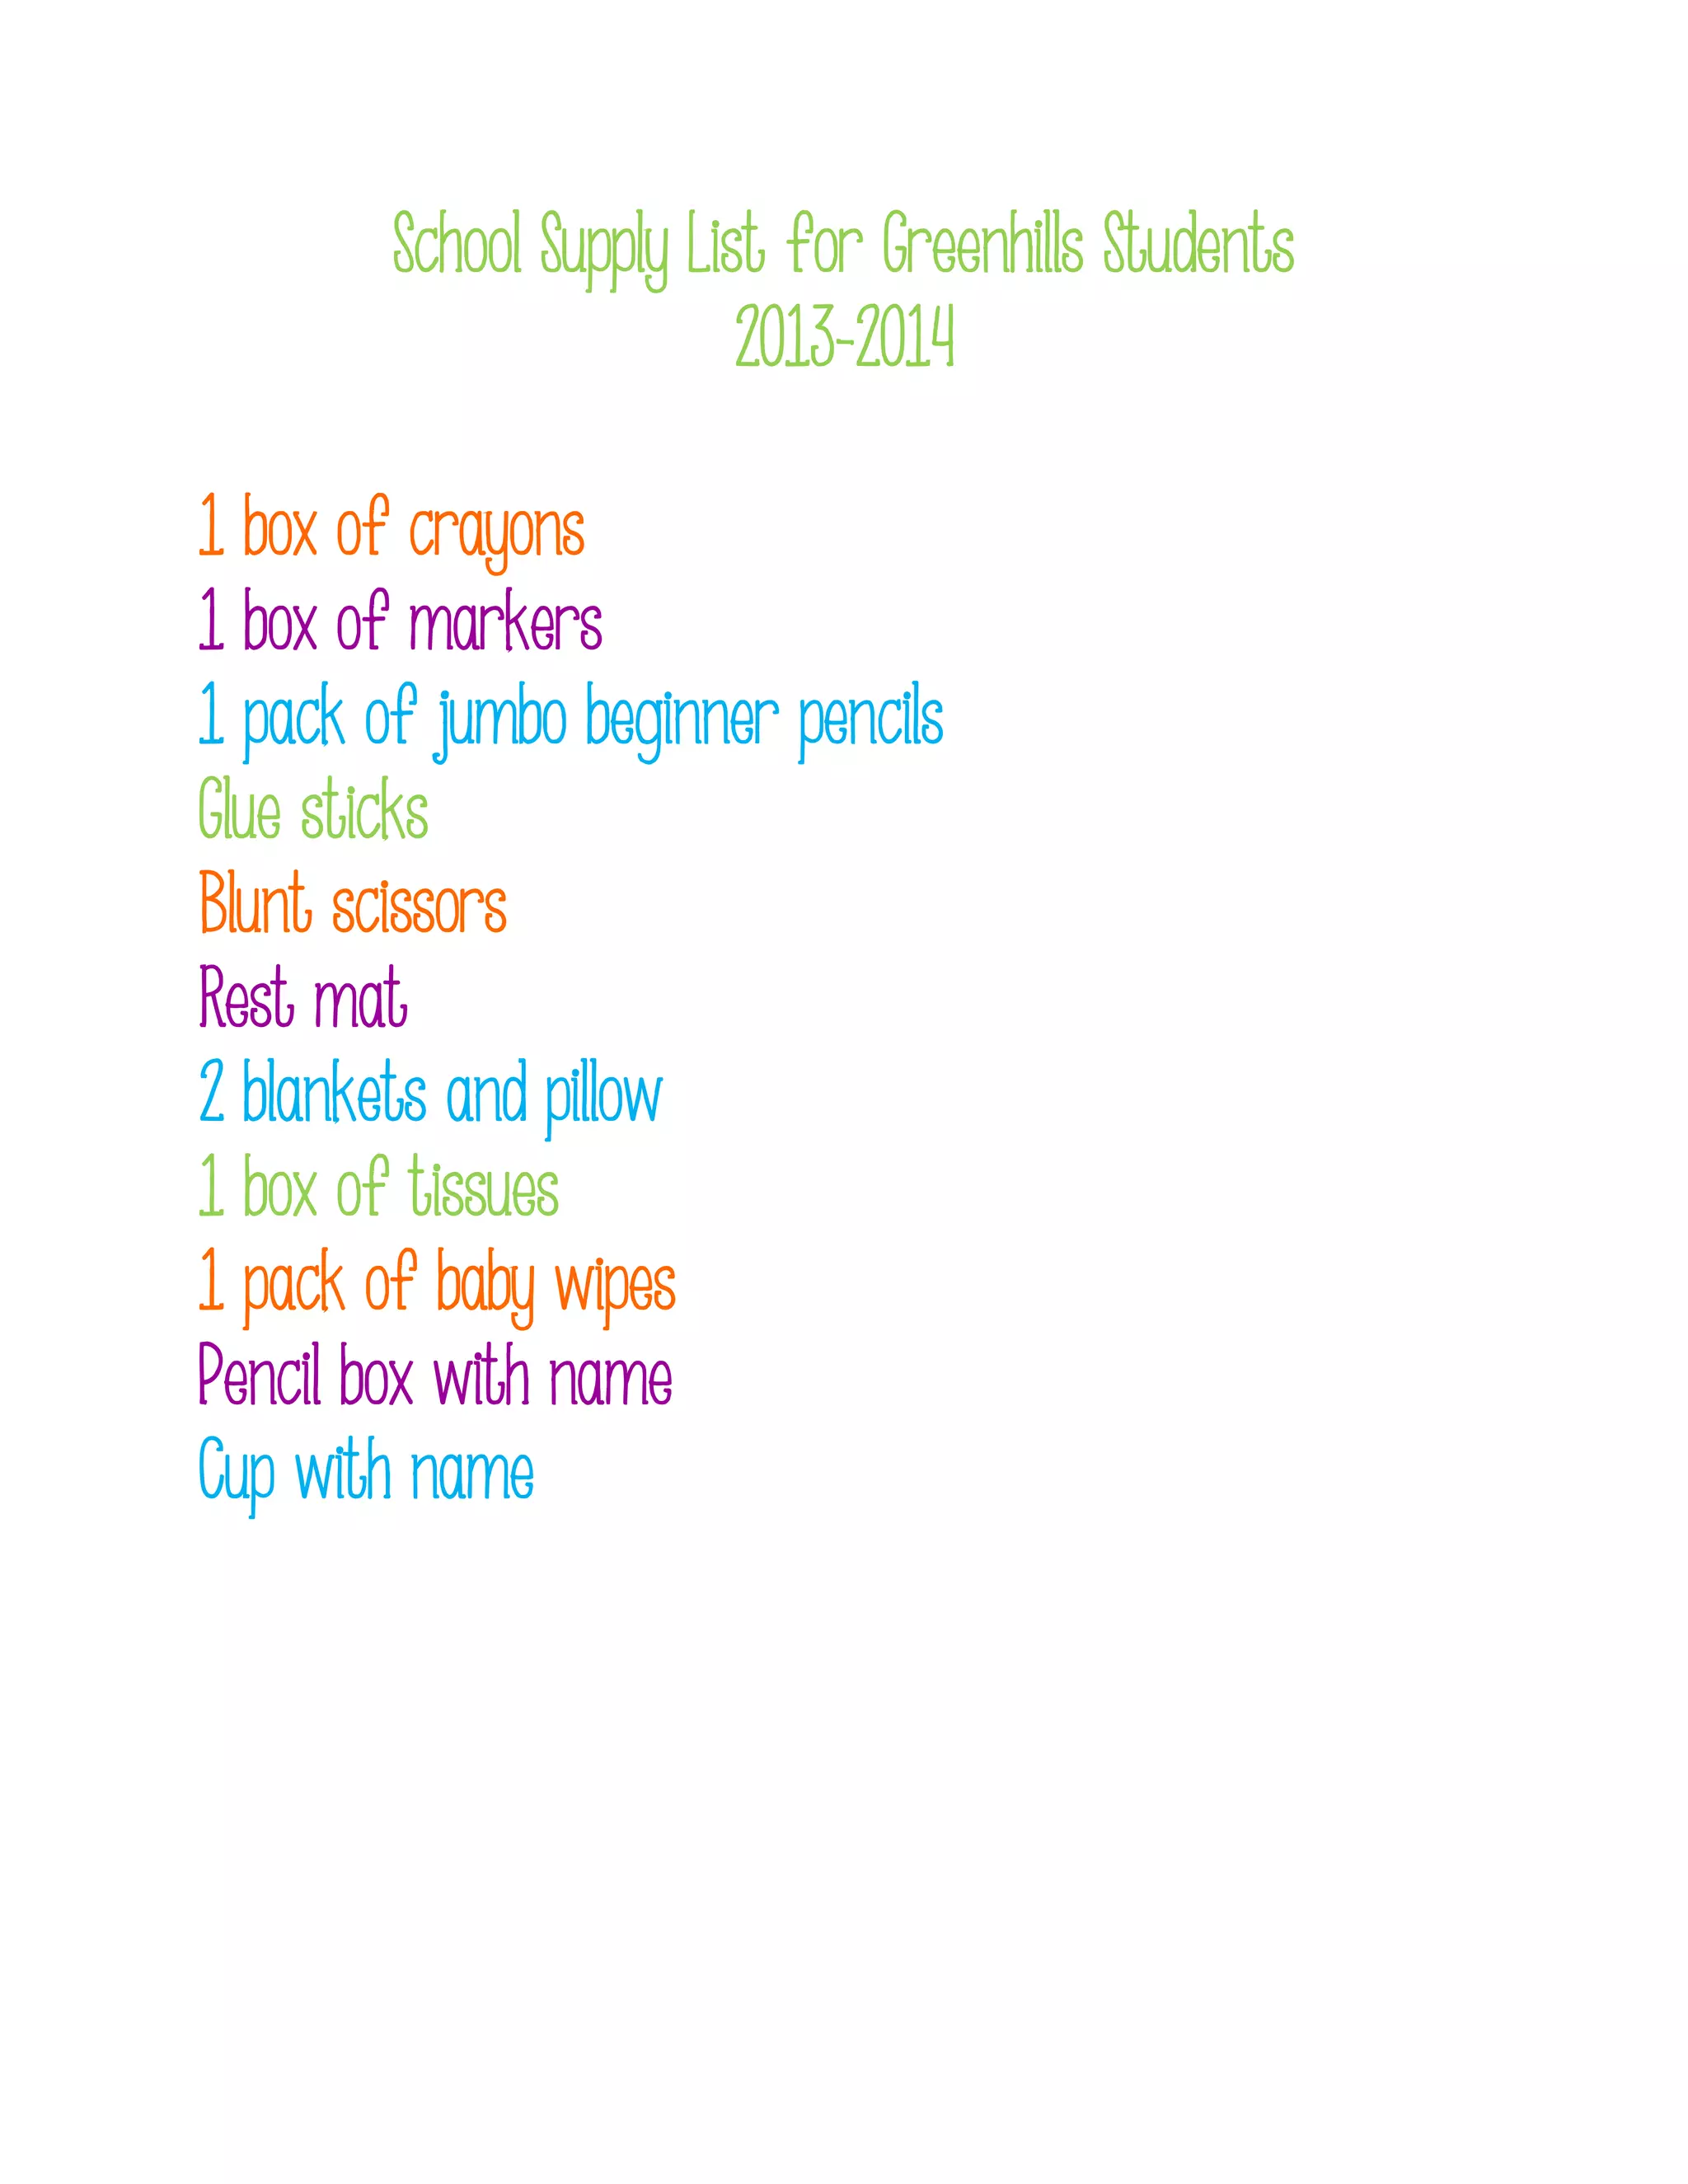 School Supply List for Greenhills Students
2013-2014
1 box of crayons
1 box of markers
1 pack of jumbo beginner pencils
Glue sticks
Blunt scissors
Rest mat
2 blankets and pillow
1 box of tissues
1 pack of baby wipes
Pencil box with name
Cup with name